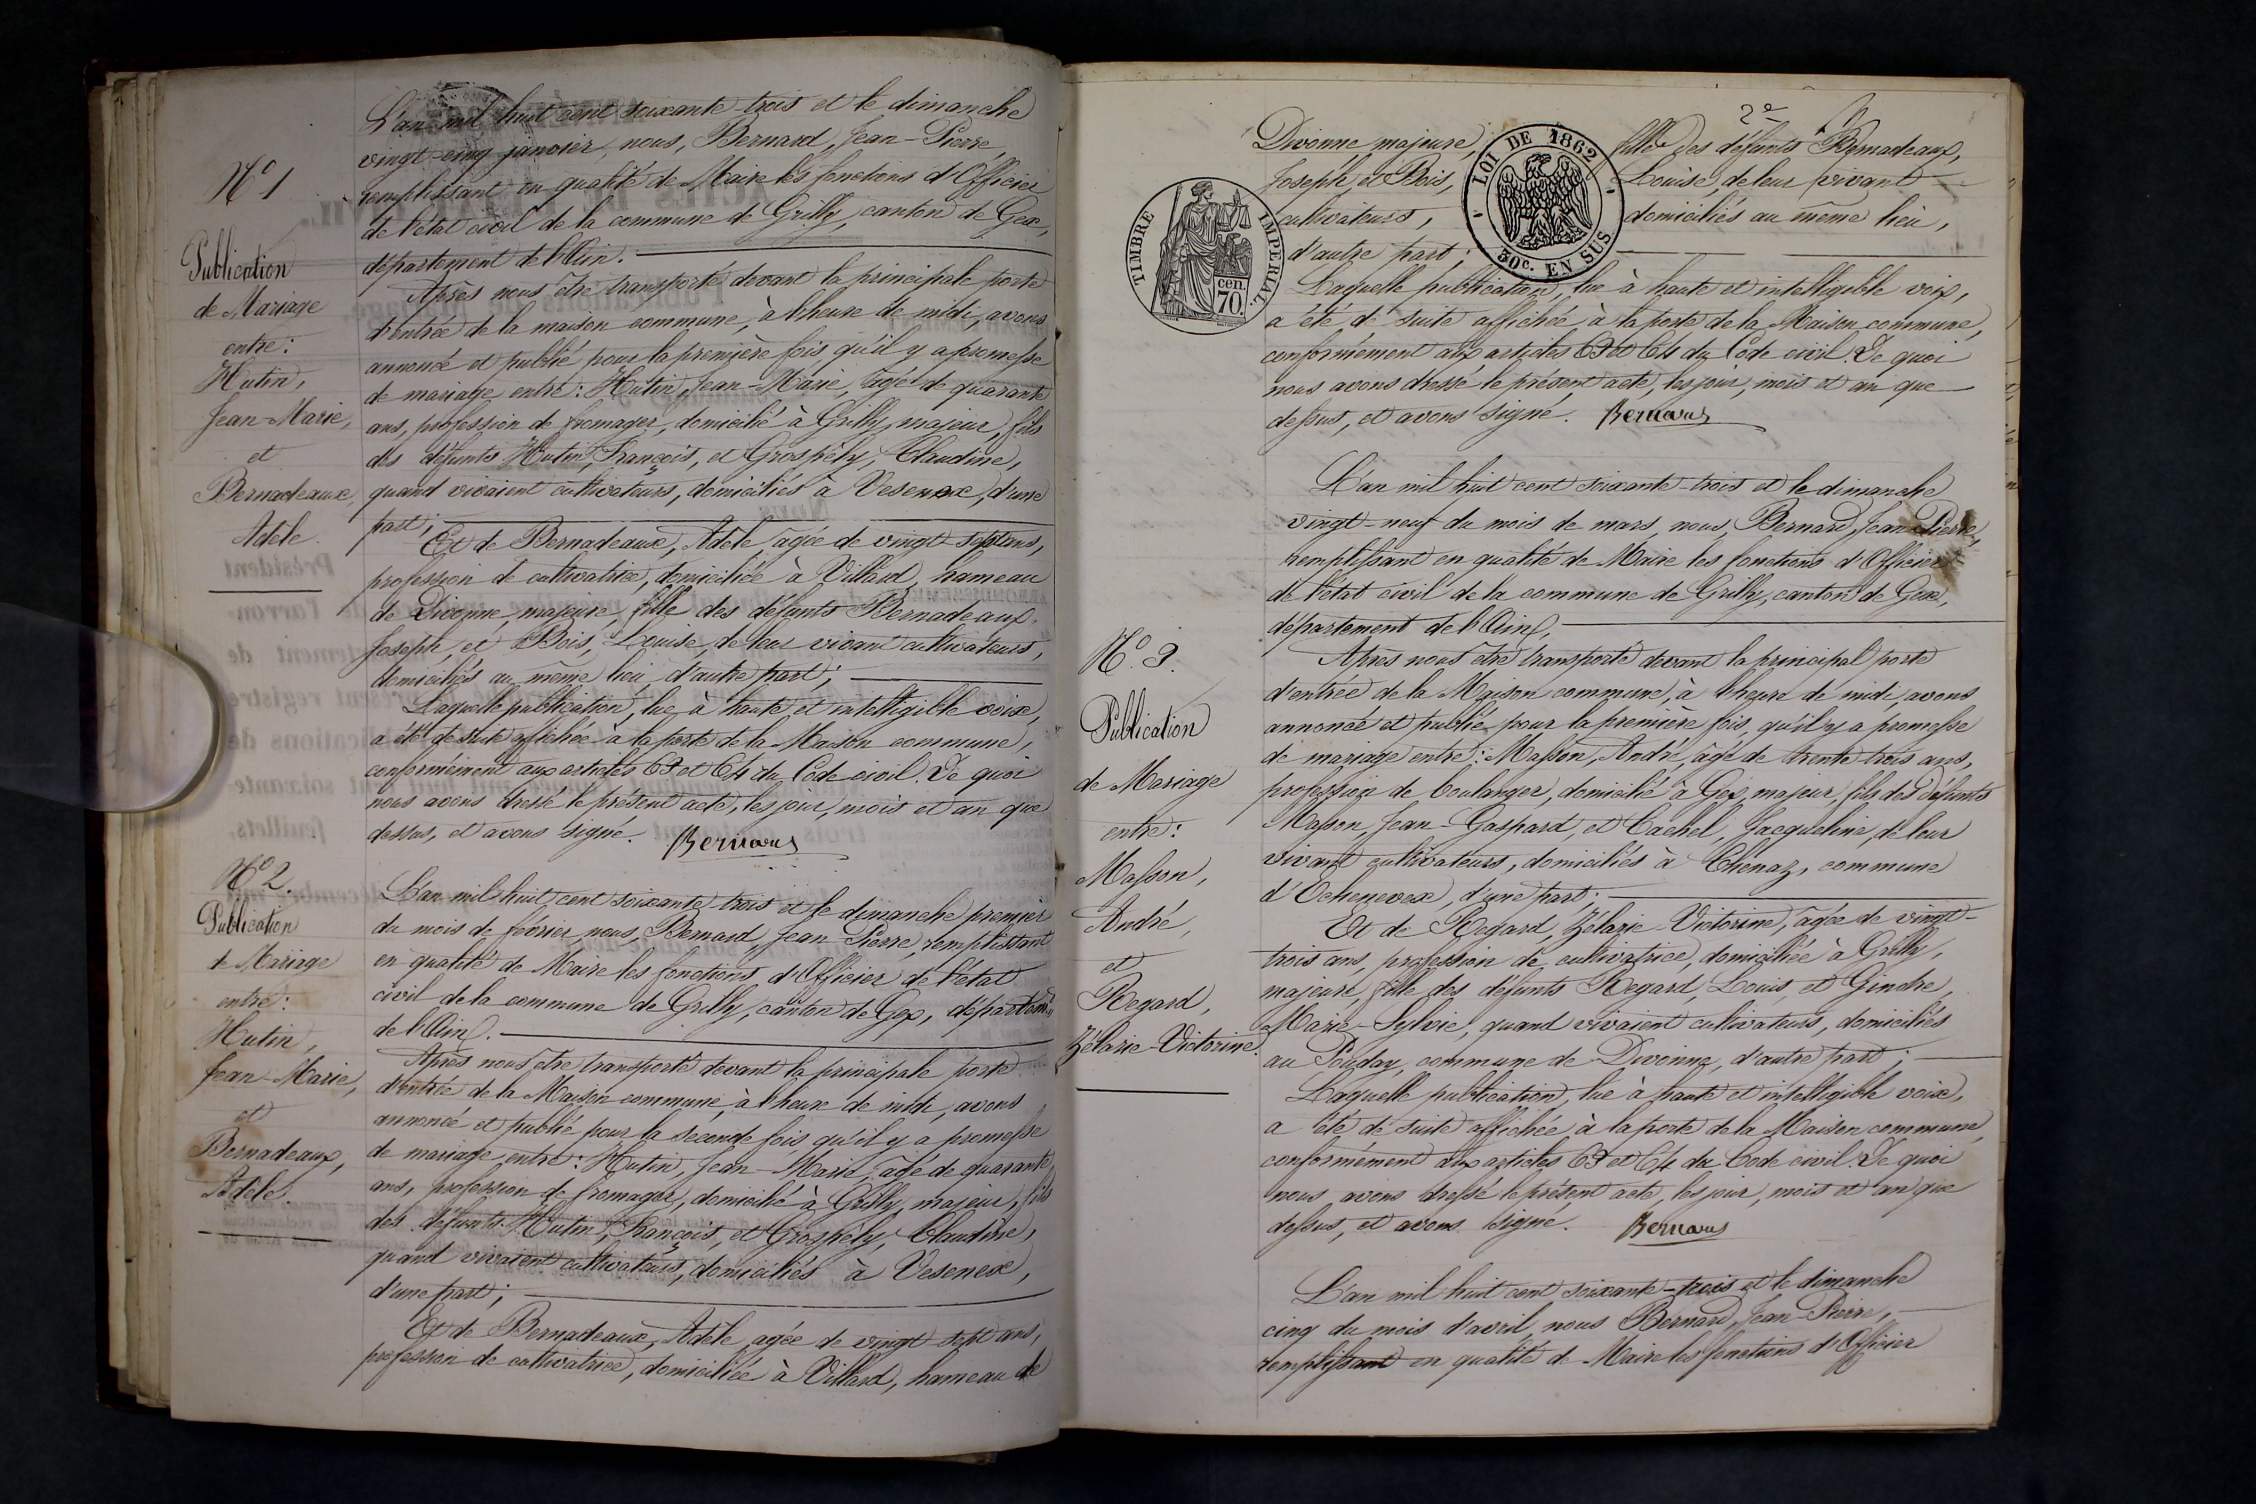 L'an mil huit cent soixante trois et le dimanche
vingt-cinq janvier, nous, Bernard, Jean-Pierre,
remplissant en qualité de Maire les fonctions d'Officier
de l'état civil de la commune de Grilly, canton de Gex,
département de l'Ain.
Après nous être transporté devant la principale porte
d'entrée de la maison commune, à l'heure de midi, avons
annoncé et publié pour la première fois qu'il y a promesse
de mariage entre: Hutin, Jean-Marie, âgé de quarante
ans, profession de fromager, domicilié à Grilly, majeur, fils
des défunts Hutin, François, et Grospély, Claudine,
quand vivaient cultivateurs, domiciliés à Vesenex, d'une
part;
Et de Bernadeaux, Adèle, âgée de vingt-sept ans,
profession de cultivatrice, domiciliée à Villard, hameau
de Divonne, majeure, fille des défunts Bernadeaux,
Joseph, et Bois, Louise, de leur vivant cultivateurs,
domiciliés au même lieu, d'autre part;
Laquelle publication, lue à haute et intelligible voix,
a été de suite affichée à la porte de la Maison commune,
conformément aux articles 63 et 64 du Code civil. De quoi
nous avons dressé le présent acte, les jour, mois et an que
dessus, et avons signé. Bernard
N° 1
Publication
de Mariage
entre:
Hutin,
Jean-Marie,
et
Bernadeaux,
Adèle.
N° 2.
Publication
de Mariage
entre:
Hutin,
Jean-Marie,
et
Bernadeaux,
Adèle.
L'an mil huit cent soixante-trois et le dimanche premier
du mois de février nous, Bernard, Jean Pierre, remplissant
en qualité de Maire les fonctions d'Officier de l'état
civil de la commune de Grilly, canton de Gex, départem.t
de l'Ain.
Après nous être transporté devant la principale porte
d'entrée de la Maison commune, à l'heure de midi, avons
annoncé et publié pour la seconde fois, qu'il y a promesse
de mariage entre: Hutin, Jean-Marie, âgé de quarante
ans, profession de fromager, domicilié à Grilly, majeur, fils
des défunts Hutin, François, et Grospély, Claudine,
quand vivaient cultivateurs, domiciliés à Vesenex,
d'une part;
Et de Bernadeaux, Adèle, agée de vingt-sept ans,
profession de cultivatrice, domiciliée à Villard, hameau de
2e
Divonne majeure, fille des défunts Bernadeaux,
Joseph, et Bois, Louise, de leur vivant
cultivateurs, domiciliés au même lieu,
d'autre part;
TIMBRE IMPERIAL
70. cen.
LOI DE 1862
50c. EN SUS
Laquelle publication, lue à haute et intelligible voix,
a été, de suite affichée à la porte de la Maison commune,
conformément aux articles 63 et 64 du Code civil. De quoi
nous avons dressé le présent acte, les jour, mois et an que
dessus, et avons signé. Bernard
L'an mil huit cent soixante-trois et le dimanche
vingt-neuf du mois de mars, nous, Bernard, Jean-Pierre,
remplissant en qualité de Maire les fonctions d'Officier
de l'état civil de la commune de Grilly, canton de Gex,
département de l'Ain,
Après nous être transporté devant la principal porte
d'entrée de la Maison commune, à l'heure de midi, avons
annoncé et publié pour la première fois, qu'il y a promesse
de mariage entre: Masson, André, âgé de trente trois ans,
profession de boulanger, domicilié à Gex, majeur, fils des défunts
Masson, Jean-Gaspard, et Cachel, Jacqueline, de leur
vivant cultivateurs, domiciliés à Chenaz, commune
d'Echenevex, d'une part;
Et de Regard, Zélarie-Victorine, âgée de vingt-
trois ans, profession de cultivatrice, domiciliée à Grilly,
majeure, fille des défunts Regard, Louis, et Gindre,
Marie-Sylvie, quand vivaient cultivateurs, domiciliés
au Pouday, commune de Divonne, d'autre part;
Laquelle publication, lue à haute et intelligible voix,
a été de suite affichée à la porte de la Maison commune,
conformément aux articles 63 et 64 du Code civil. De quoi
nous avons dressé le présent acte, les jour, mois et an que
dessus, et avons signé. Bernard
N° 3.
Publication
de Mariage
entre:
Masson,
André,
et
Regard,
Zélarie-Victorine.
L'an mil huit cent soixante-trois et le dimanche
cinq du mois d'avril, nous Bernard, Jean-Pierre,
remplissant en qualité de Maire les fonctions d'Officier